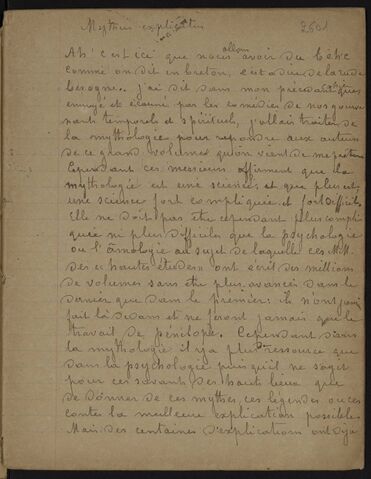 Mythes explication 2501
Ah! c'est ici que nous allons avoir du
comme on dit en breton, c'est à dire de la rude
besogne. j'ai dit dans mon précédent
ennuyé et écœuré par les comédies de nos gouver
nants temporels et spirituels, j'allais traiter de
la mythologie pour répondre aux auteurs
de ce grand volumes qu'on vient de me prêter
Cependant ces messieurs affirment que la
mythologie est une science, et que plus est
une science fort compliquée et fort difficile
Elle ne doit pas être cependant plus compli
quée ni plus difficile que la psychologie
ou l'âmologie au sujet de laquelle ces M.M.
des hautes études ont écrit des millions
de volumes sans être plus avancés dans le
dernier que dans le premier: ils n'ont jamais
fait là dedans et ne feront jamais que le
travail de pénélope. Cependant dans
la mythologie il y a plus de ressource que
dans la psychologie puisqu'il ne s'agit
pour ces savants des hauts lieux que
de donner de ces mythes, ces légendes ou ces
contes la meilleure explication possible
Mais des centaines d'explications ont déjà